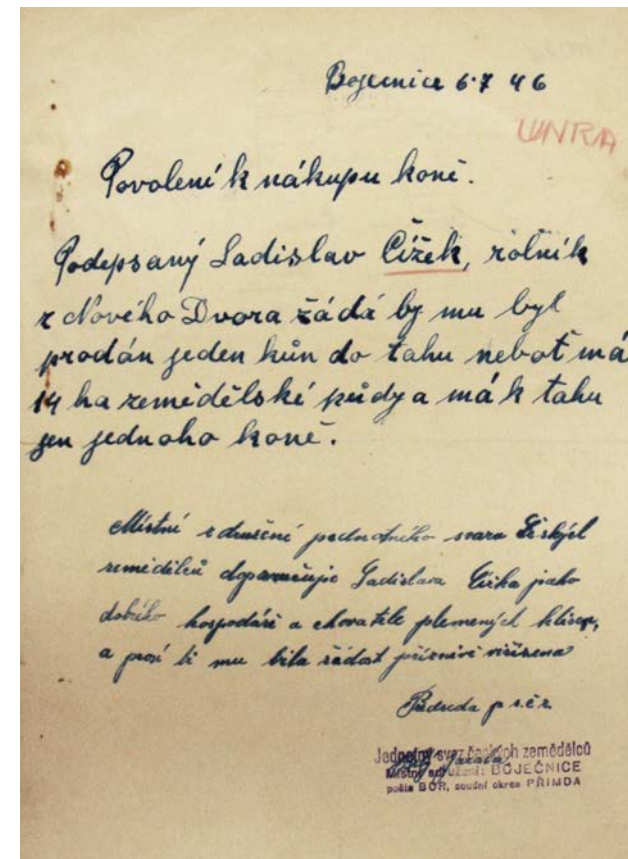 Bojecnice 6.7 46
UNRA
Povolení k nákupu koně.
Podepsaný Ladislav Čížek, rolník
z Nového Dvora žádá by mu byl
prodán jeden kůn do tahu neboť má
14 ha zemědělské půdy a má k tahu
jen jednoho koně.
Místní sdružení jednotného svazu českých
zemědělců doporučuje Ladislava Čížka jako
dobrého hospodáře a chovatele plemených klisen,
a prosí by mu bila žádost příznivě viřízena
Předseda
Jednotný svaz českých zemědělců
Místní sdružení: BOJEČNICE
pošta BOR, soudní okres PŘIMDA